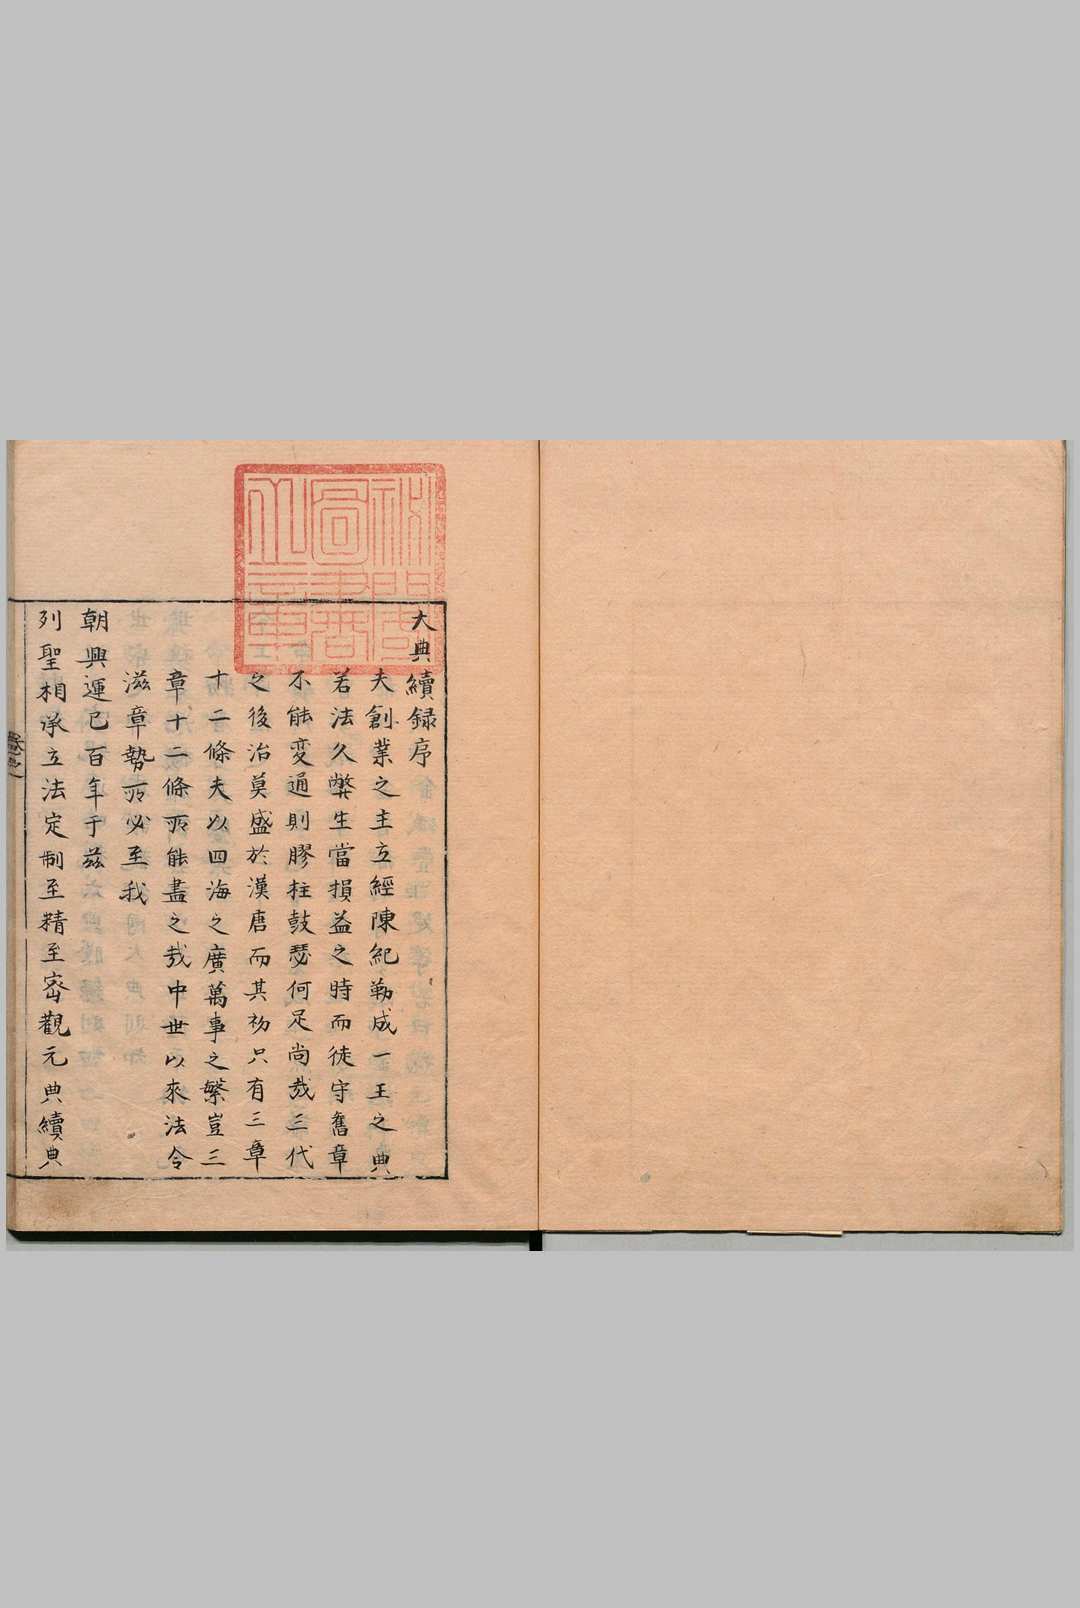 大典續録序
夫創業之主立經陳紀勒成一王之典
若法久弊生當損益之時而徒守舊章
不能変通則膠柱鼓瑟何足尚㢤三代
之後治莫盛於漢唐而其初只有三章
十二條夫以四海之廣萬事之繁豈三
章十二條所能盡之㢤中世以來法令
滋章勢所必至我
朝興運已百年于兹
列聖相承立法定制至精至宻觀元典續典
秘閣圖書之章